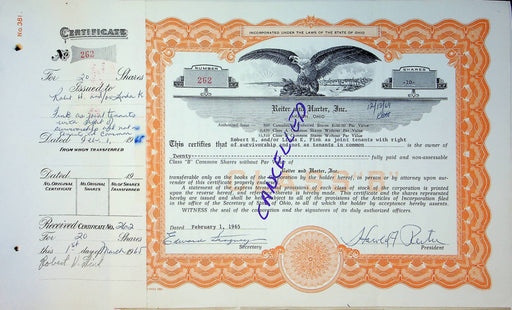 No. 381.
CERTIFICATE
No 262
For 20 Shares
Issued to
Robt H. and/or Linda K.
Fink as joint tenants
with right of
survivorship and not as
tenants in Common
Dated Feb. 1, 1965
FROM WHOM TRANSFERRED
Dated 19
NO. ORIGINAL CERTIFICATE
NO. ORIGINAL SHARES
NO. OF SHARES TRANSFERRED
Received Certificate No. 262
For 20 Shares
this 1st day of March 1965
INCORPORATED UNDER THE LAWS OF THE STATE OF OHIO
NUMBER
262
SHARES
-20-
Reiter and Harter, Inc.
OHIO
12/15/69
CANCELLED
Robert H. and/or Linda K. Fink, as joint tenants with right
This certifies that of survivorship and not as tenants in common is the owner of
Twenty fully paid and non-assessable
Class "B" Common Shares without Par Value of
Reiter and Harter, Inc.
transferable only on the books of the Corporation by the holder hereof, in person or by attorney upon
surrender of this certificate properly endorsed.
A statement of the express terms of the shares of stock of the corporation is printed
upon the reverse hereof, and reference thereto is hereby made. This certificate and the shares
represented hereby are issued and shall be held subject to all of the provisions of the Articles of Incorporation filed
in the office of the Secretary of State of Ohio, to all of which the holder by acceptance hereby assents.
WITNESS the seal of the Corporation and the signatures of its duly authorized officers.
Dated February 1, 1965
Secretary
Harold F. Reiter
President